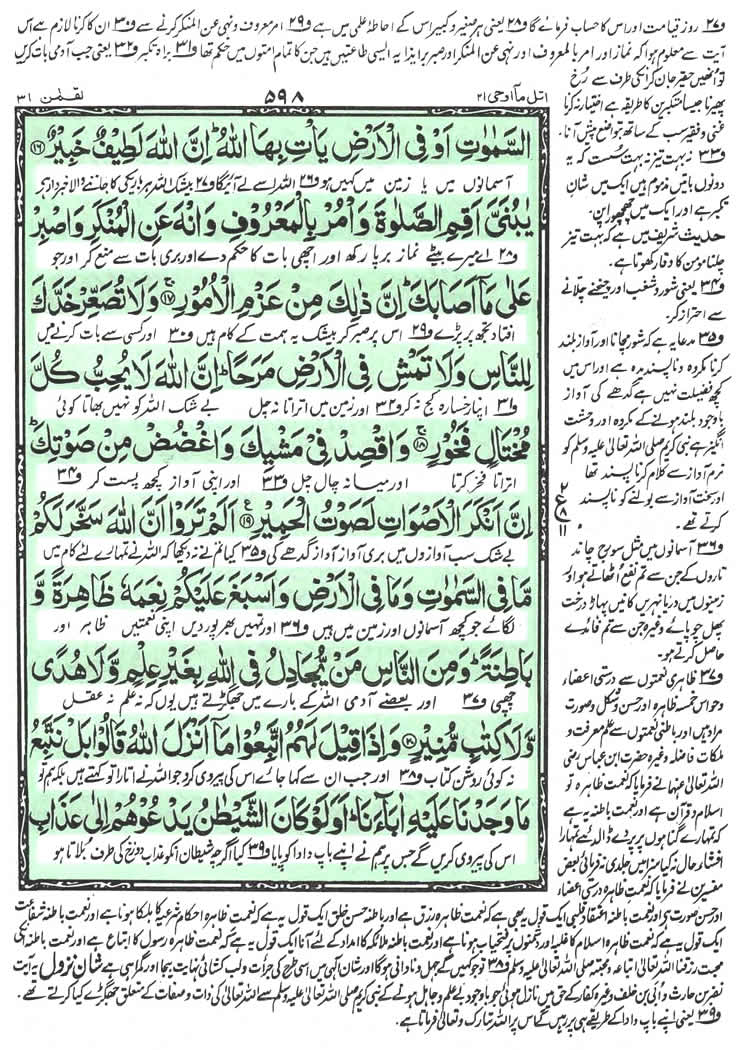 و۲۷ روز قیامت اور اس کا حساب فرمائے گا و۲۸ یعنی ہر صغیر و کبیر اس کے احاطۂ علمی میں ہے و۲۹ امر معروف و نہی عن المنکر کرنے سے و۳۰ ان کا کرنا لازم ہے اس
آیت سے معلوم ہوا کہ نماز اور امر بالمعروف اور نہی عن المنکر اور صبر بر ایذا یہ ایسی طاعتیں ہیں جن کا تمام امتوں میں حکم تھا و۳۱ براہ تکبر و۳۲ یعنی جب آدمی بات کریں
تو انھیں حقیر جان کر ان کی طرف سے رُخ
پھیرنا جیسا متکبرین کا طریقہ ہے اختیار نہ کرنا
غنی و فقیر سب کے ساتھ بتواضع پیش آنا۔
و۳۳ نہ بہت تیز نہ بہت سُست کہ یہ
دونوں باتیں مذموم ہیں ایک میں شانِ
تکبر ہے اور ایک میں چھچھورا پن۔
حدیث شریف میں ہے کہ بہت تیز
چلنا مومن کا وقار کھوتا ہے۔
و۳۴ یعنی شور و شغب اور چیخنے چلانے
سے احتراز کر۔
و۳۵ مدعا یہ ہے کہ شور مچانا اور آواز بلند
کرنا مکروہ و ناپسندیدہ ہے اور اس میں
کچھ فضیلت نہیں ہے گدھے کی آواز
باوجود بلند ہونے کے مکروہ اور وحشت
انگیز ہے نبی کریم صلی اللہ تعالیٰ علیہ وسلم کو
نرم آواز سے کلام کرنا پسند تھا
اور سخت آواز سے بولنے کو ناپسند
کرتے تھے۔
و۳۶ آسمانوں میں مثل سورج چاند
تاروں کے جن سے تم نفع اُٹھاتے ہو اور
زمینوں میں دریا نہریں کانیں پہاڑ درخت
پھل چوپائے وغیرہ جن سے تم فائدے
حاصل کرتے ہو۔
و۳۷ ظاہری نعمتوں سے درستیٔ اعضاء
و حواس خمسہ ظاہرہ اور حسن و شکل و صورت
مراد ہیں اور باطنی نعمتوں سے علم معرفت و
ملکات فاضلہ وغیرہ حضرت ابن عباس رضی
اللہ تعالیٰ عنہما نے فرمایا کہ نعمت ظاہرہ تو
اسلام و قرآن ہے اور نعمت باطنہ یہ ہے
کہ تمہارے گناہوں پر پردے ڈال دیئے تمہارا
افشاءِ حال نہ کیا سزا میں جلدی نہ فرمائی بعض
مفسرین نے فرمایا کہ نعمت ظاہرہ درستیٔ اعضاء
لقمٰن ۳۱
۵۹۸
اتل مآ اوحی ۲۱
السَّمٰوٰتِ اَوْ فِی الْاَرْضِ یَاْتِ بِهَا اللّٰهُ ؕ اِنَّ اللّٰهَ لَطِیْفٌ خَبِیْرٌ ﴿۱۶﴾
آسمانوں میں یا زمین میں کہیں ہو و۲۶ اللہ اسے لے آئے گا و۲۷ بیشک اللہ ہر باریکی کا جاننے والا خبردار ہے
یٰبُنَیَّ اَقِمِ الصَّلٰوةَ وَ اْمُرْ بِالْمَعْرُوْفِ وَ انْهَ عَنِ الْمُنْكَرِ وَ اصْبِرْ
و۲۸ اے میرے بیٹے نماز برپا رکھ اور اچھی بات کا حکم دے اور بری بات سے منع کر اور جو
عَلٰی مَاۤ اَصَابَكَ ؕ اِنَّ ذٰلِكَ مِنْ عَزْمِ الْاُمُوْرِ ﴿۱۷﴾ وَ لَا تُصَعِّرْ خَدَّكَ
افتاد تجھ پر پڑے و۲۹ اس پر صبر کر بیشک یہ ہمت کے کام ہیں و۳۰ اور کسی سے بات کرنے میں
لِلنَّاسِ وَ لَا تَمْشِ فِی الْاَرْضِ مَرَحًا ؕ اِنَّ اللّٰهَ لَا یُحِبُّ كُلَّ
و۳۱ اپنا رخسارہ کج نہ کر و۳۲ اور زمین میں اتراتا نہ چل بے شک اللہ کو نہیں بھاتا کوئی
مُخْتَالٍ فَخُوْرٍ ﴿۱۸﴾ وَ اقْصِدْ فِیْ مَشْیِكَ وَ اغْضُضْ مِنْ صَوْتِكَ ؕ
اتراتا فخر کرتا اور میانہ چال چل و۳۳ اور اپنی آواز کچھ پست کر و۳۴
اِنَّ اَنْكَرَ الْاَصْوَاتِ لَصَوْتُ الْحَمِیْرِ ﴿۱۹﴾ اَلَمْ تَرَوْا اَنَّ اللّٰهَ سَخَّرَ لَكُمْ
بے شک سب آوازوں میں بری آواز آواز گدھے کی و۳۵ کیا تم نے نہ دیکھا کہ اللہ نے تمہارے لئے کام میں
مَّا فِی السَّمٰوٰتِ وَ مَا فِی الْاَرْضِ وَ اَسْبَغَ عَلَیْكُمْ نِعَمَهٗ ظَاهِرَةً وَّ
لگائے جو کچھ آسمانوں اور زمین میں ہیں و۳۶ اور تمہیں بھرپور دیں اپنی نعمتیں ظاہر اور
بَاطِنَةً ؕ وَ مِنَ النَّاسِ مَنْ یُّجَادِلُ فِی اللّٰهِ بِغَیْرِ عِلْمٍ وَّ لَا هُدًی
چھپی و۳۷ اور بعضے آدمی اللہ کے بارے میں جھگڑتے ہیں یوں کہ نہ علم نہ عقل
وَّ لَا كِتٰبٍ مُّنِیْرٍ ﴿۲۰﴾ وَ اِذَا قِیْلَ لَهُمُ اتَّبِعُوْا مَاۤ اَنْزَلَ اللّٰهُ قَالُوْا بَلْ نَتَّبِعُ
نہ کوئی روشن کتاب و۳۸ اور جب ان سے کہا جائے اس کی پیروی کرو جو اللہ نے اتارا تو کہتے ہیں بلکہ ہم تو
مَا وَجَدْنَا عَلَیْهِ اٰبَآءَنَا ؕ اَوَ لَوْ كَانَ الشَّیْطٰنُ یَدْعُوْهُمْ اِلٰی عَذَابِ
اس کی پیروی کریں گے جس پر ہم نے اپنے باپ دادا کو پایا و۳۹ کیا اگرچہ شیطان ان کو عذاب دوزخ کی طرف بلاتا ہو
۲
ع
۸
۱۱
اور حسن صورت ہے اور نعمت باطنہ اعتقاد قلبی ایک قول یہ بھی ہے کہ نعمت ظاہرہ رزق ہے اور باطنہ حسن خلق ایک قول یہ ہے کہ نعمت ظاہرہ احکام شرعیہ کا ہلکا ہونا ہے اور نعمت باطنہ شفاعت
ایک قول یہ ہے کہ نعمت ظاہرہ اسلام کا غلبہ اور دشمنوں پر فتحیاب ہونا ہے اور نعمت باطنہ ملائکہ کا امداد کے لئے آنا ایک قول یہ ہے کہ نعمت ظاہرہ رسول کا اتباع ہے اور نعمت باطنہ ان کی
محبت رزقنا اللہ تعالیٰ اتباعہ و محبتہ صلی اللہ تعالیٰ علیہ وسلم و۳۸ تو جو کہیں گے جہل و نادانی ہوگا اور شان الٰہی میں اس طرح کی جرأت و لب کشائی نہایت بیجا اور گمراہی ہے شان نزول یہ آیت
نضر بن حارث و اُبی بن خلف وغیرہ کفار کے حق میں نازل ہوئی جو باوجود بے علم و جاہل ہونے کے نبی کریم صلی اللہ تعالیٰ علیہ وسلم سے اللہ تعالیٰ کی ذات و صفات کے متعلق جھگڑے کیا کرتے تھے۔
و۳۹ یعنی اپنے باپ دادا کے طریقے ہی پر رہیں گے اس پر اللہ تبارک و تعالیٰ فرماتا ہے۔